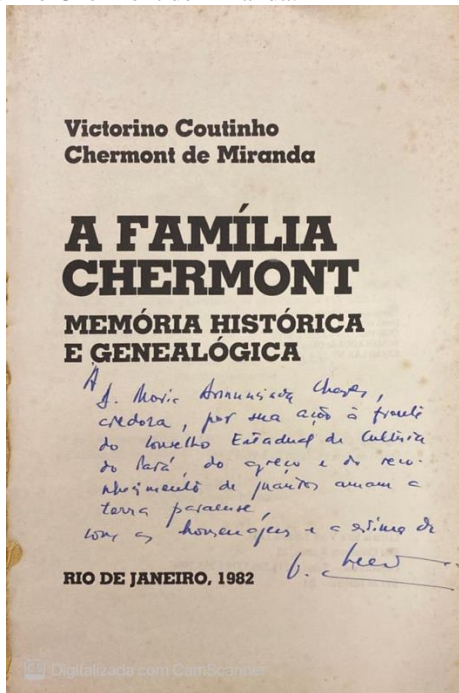 Victorino Coutinho
Chermont de Miranda
A FAMÍLIA
CHERMONT
MEMÓRIA HISTÓRICA
E GENEALÓGICA
À
D. Maria Annunciada Chaves,
credora, por sua ação à frente
do Conselho Estadual de Cultura
do Pará, do apreço e do reco-
nhecimento de quantos amam a
terra paraense,
com as homenagens e a estima de
RIO DE JANEIRO, 1982
CS Digitalizada com CamScanner